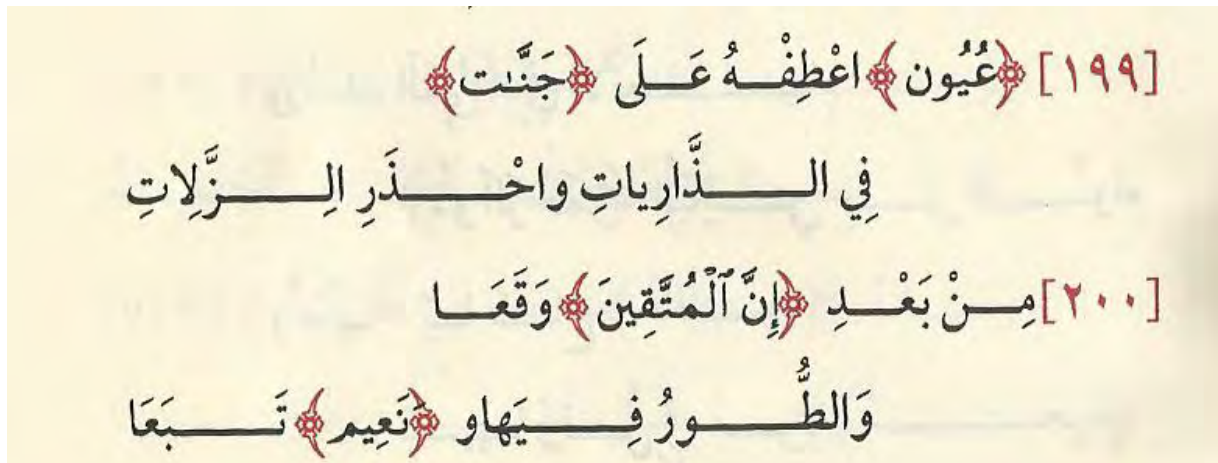 [١٩٩] ﴿عُيُون﴾ اعْطِفْهُ عَلَى ﴿جَنَّٰت﴾
فِي الذَّارِياتِ واحْذَرِ الِزَّلِاتِ
[٢٠٠] مِنْ بَعْدِ ﴿إِنَّ ٱلْمُتَّقِينَ﴾ وَقَعَا
وَالطُّورُ فِيَهاو ﴿نَعِيم﴾ تَبَعَا